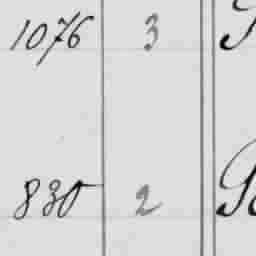 1076 3
830 2